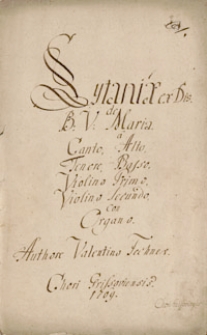 Lytaniæ ex Dis.
de
B. V. Maria.
a
Canto, Alto,
Tenore, Basso,
Violino Primo,
Violino Secundo,
con
Organo.
Authore Valentino Techner.
Chori
1709.